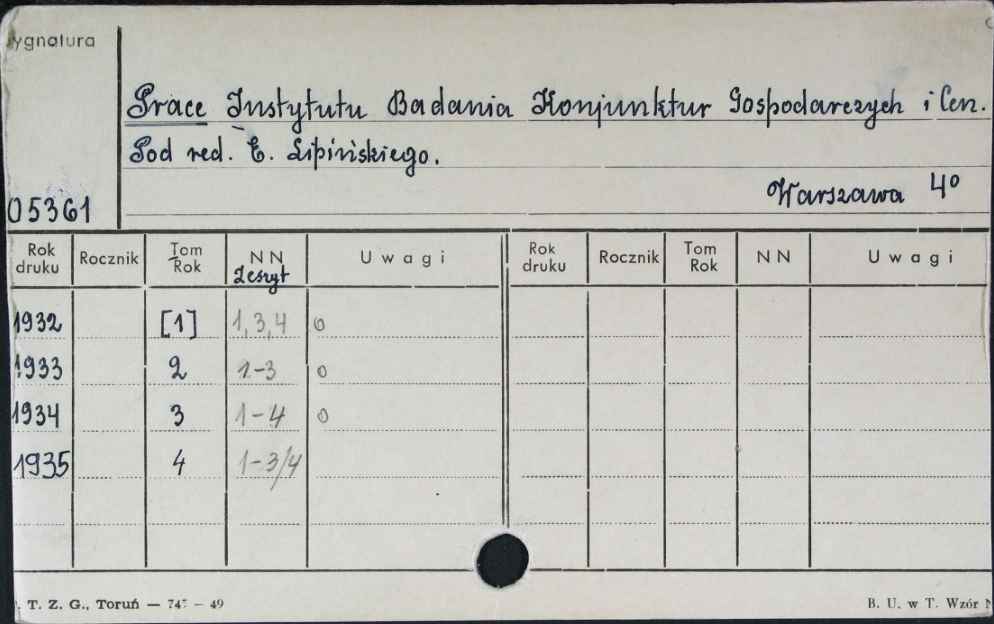 ygnatura
Prace Instytutu Badania Konjunktur Gospodarczych i Cen.
Pod red. E. Lipińskiego.
05361
Warszawa 4º
Rok druku Rocznik Tom Rok NN Zeszyt Uwagi Rok druku Rocznik Tom Rok NN Uwagi
1932 [1] 1,3,4 o
1933 2 1-3 o
1934 3 1-4 o
1935 4 1-3/4
. T. Z. G., Toruń — 747 — 49
B. U. w T. Wzór